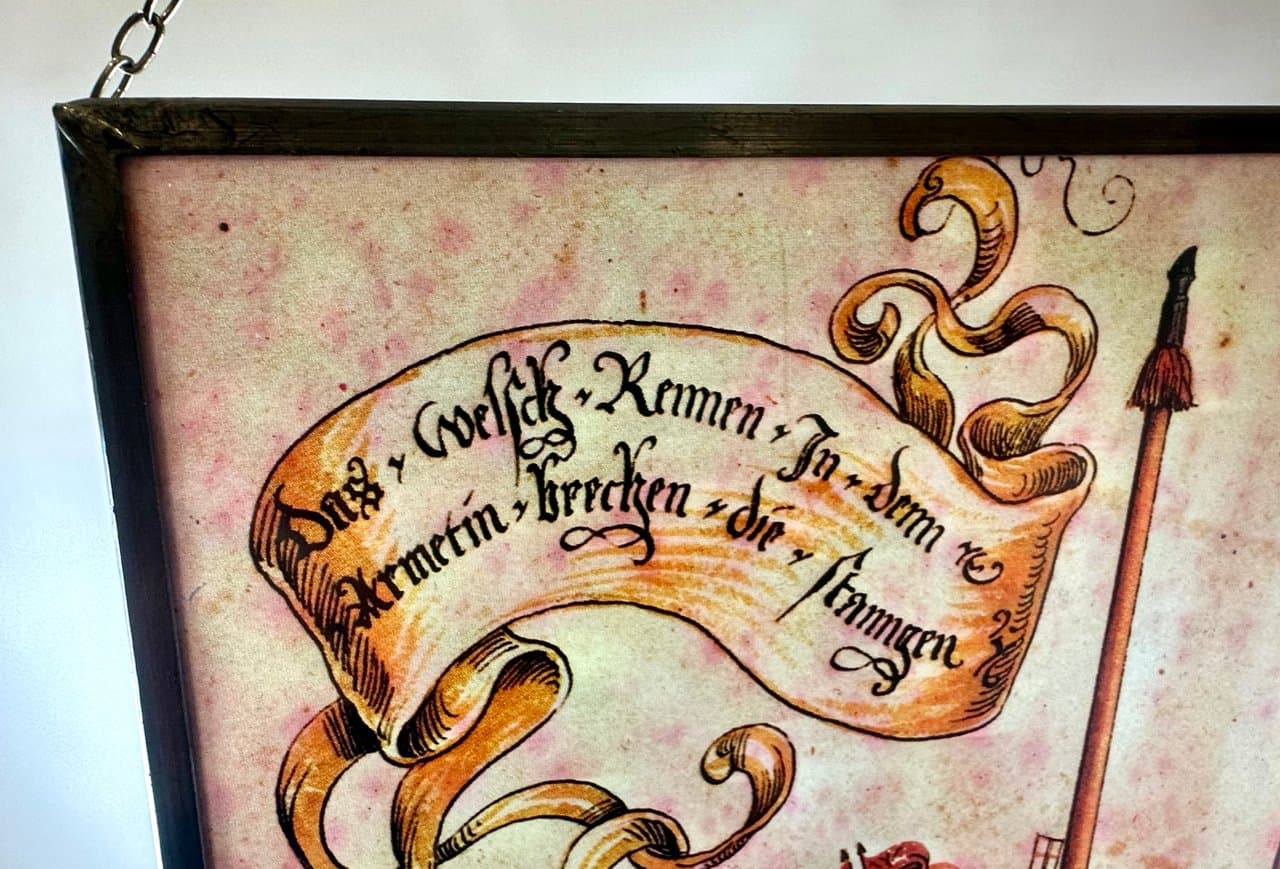 Das welsch Rennen In denn
Armetin brechen die stanngen